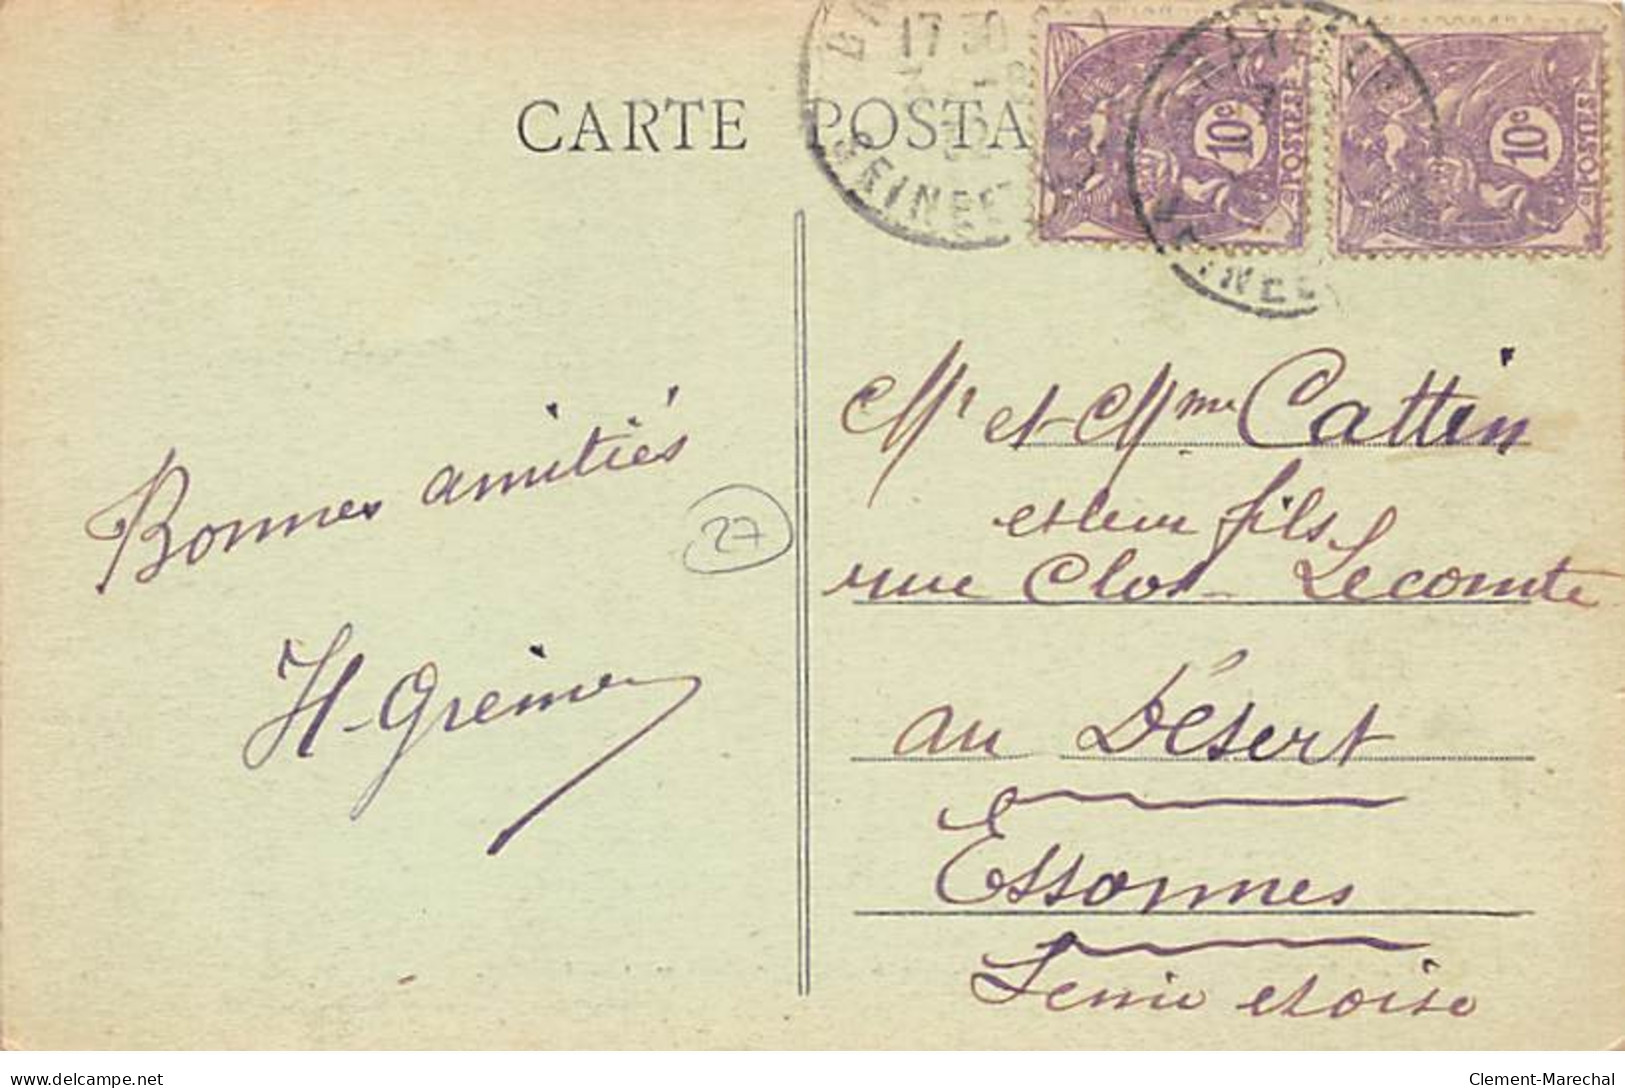 CARTE POSTA
17 30
10c
POSTES
10c
POSTES
Mr et Mme Cattin
et leur fils
rue Clos Lecomte
au Désert
Essonnes
Seine et oise
Bonnes amitiés
27
delcampe.net
Clement-Marechal